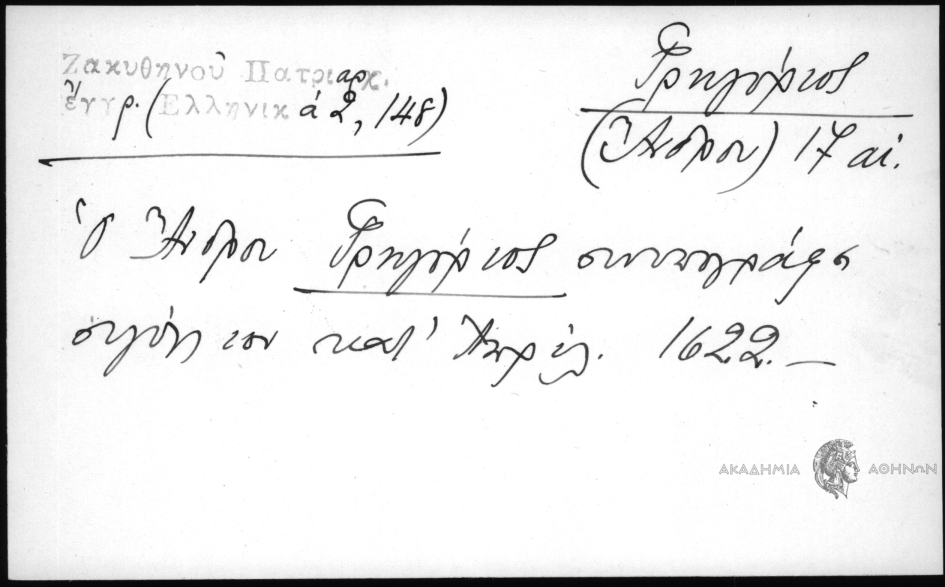 Ζακυθηνοῦ Πατριαρχ.
ἔγγρ. (Ἑλληνικά 2, 148)
Γρηγόριος
(Ἄνδρου) 17 αἰ.
ὁ Ἄνδρου Γρηγόριος συνυπογράφει
σιγίλλιον κατ' Ἀπρίλ. 1622.—
ΑΚΑΔΗΜΙΑ ΑΘΗΝΩΝ